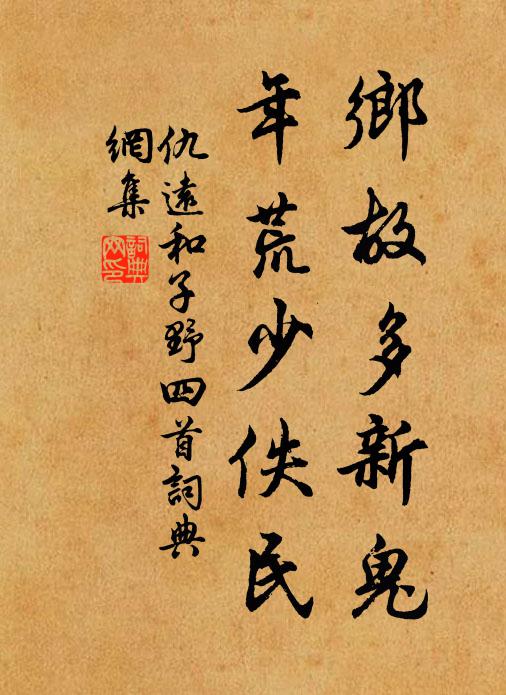 鄉故多新鬼
年荒少佚民
仇遠和子野四首詞典
網集
詞典網印